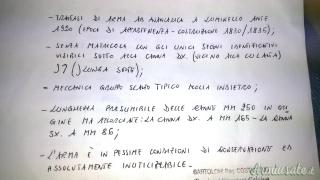 - TRATTASI DI ARMA AD AVANCARICA A LUMINELLO ANTE
1920 (EPOCA DI APPARTENENZA - COSTRUZIONE 1830/1835);
- SENZA MATRICOLA CON GLI UNICI SEGNI IDENTIFICATIVI
VISIBILI SOTTO ALLA CANNA DX. (VICINO ALLA CULATTA)
J7 (J LUNGA SOTTO);
= MECCANICA GRUPPO SCATTO TIPICO MOLLA INDIETRO;
- LUNGHEZZA PRESUMIBILE DELLE CANNE MM 250 IN ORI
GINE MA ANCORCHE: LA CANNA DX. A MM 165 - LA CANNA
SX. A MM 86;
- L'ARMA È IN PESSIME CONDIZIONI DI CONSERVAZIONE ED
ASSOLUTAMENTE INUTILIZZABILE.
BARTOLONI
Armiusate.it